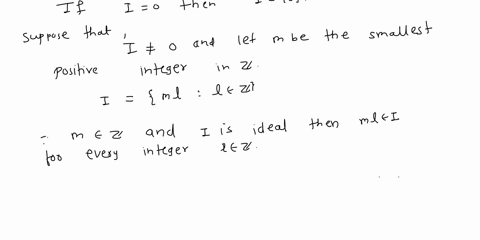 If I = 0 then
suppose that,
I ≠ 0 and let m be the smallest
positive integer in ℤ.
I = { ml : l ∈ ℤ}
∵ m ∈ ℤ and I is ideal then ml ∈ I
foo every integer l ∈ ℤ.